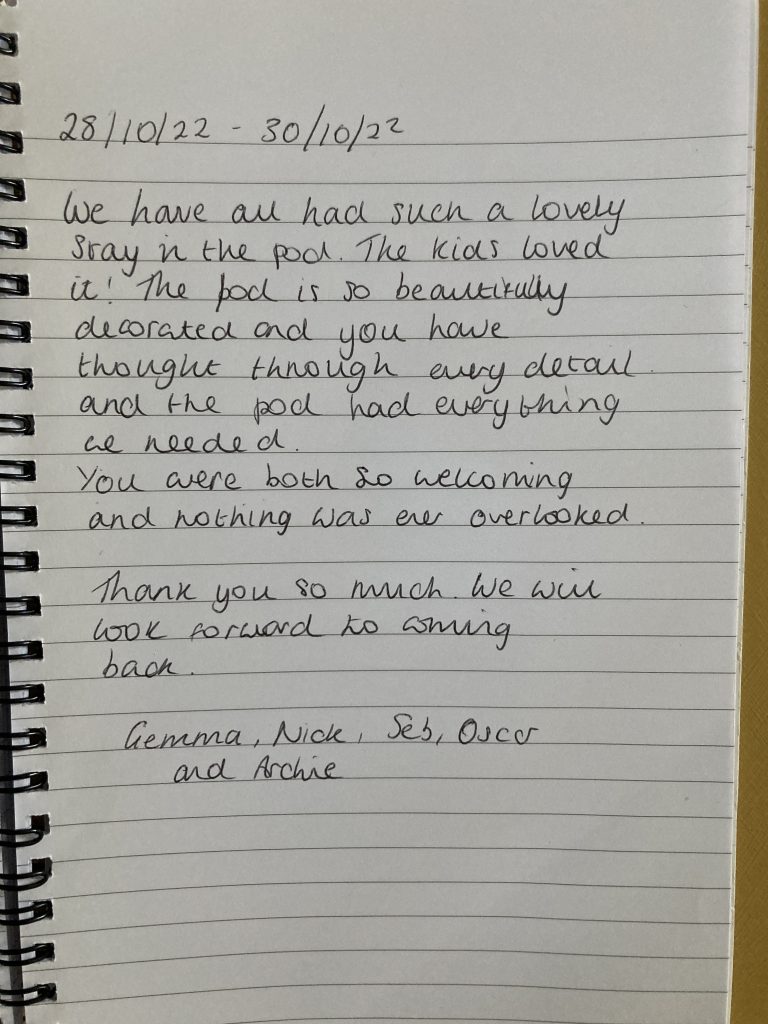 28/10/22 - 30/10/22
We have all had such a lovely
stay in the pod. The kids loved
it! The pod is so beautifully
decorated and you have
thought through every detail
and the pod had everything
we needed.
You were both so welcoming
and nothing was ever overlooked.
Thank you so much. We will
look forward to coming
back.
Gemma, Nick, Seb, Oscar
and Archie